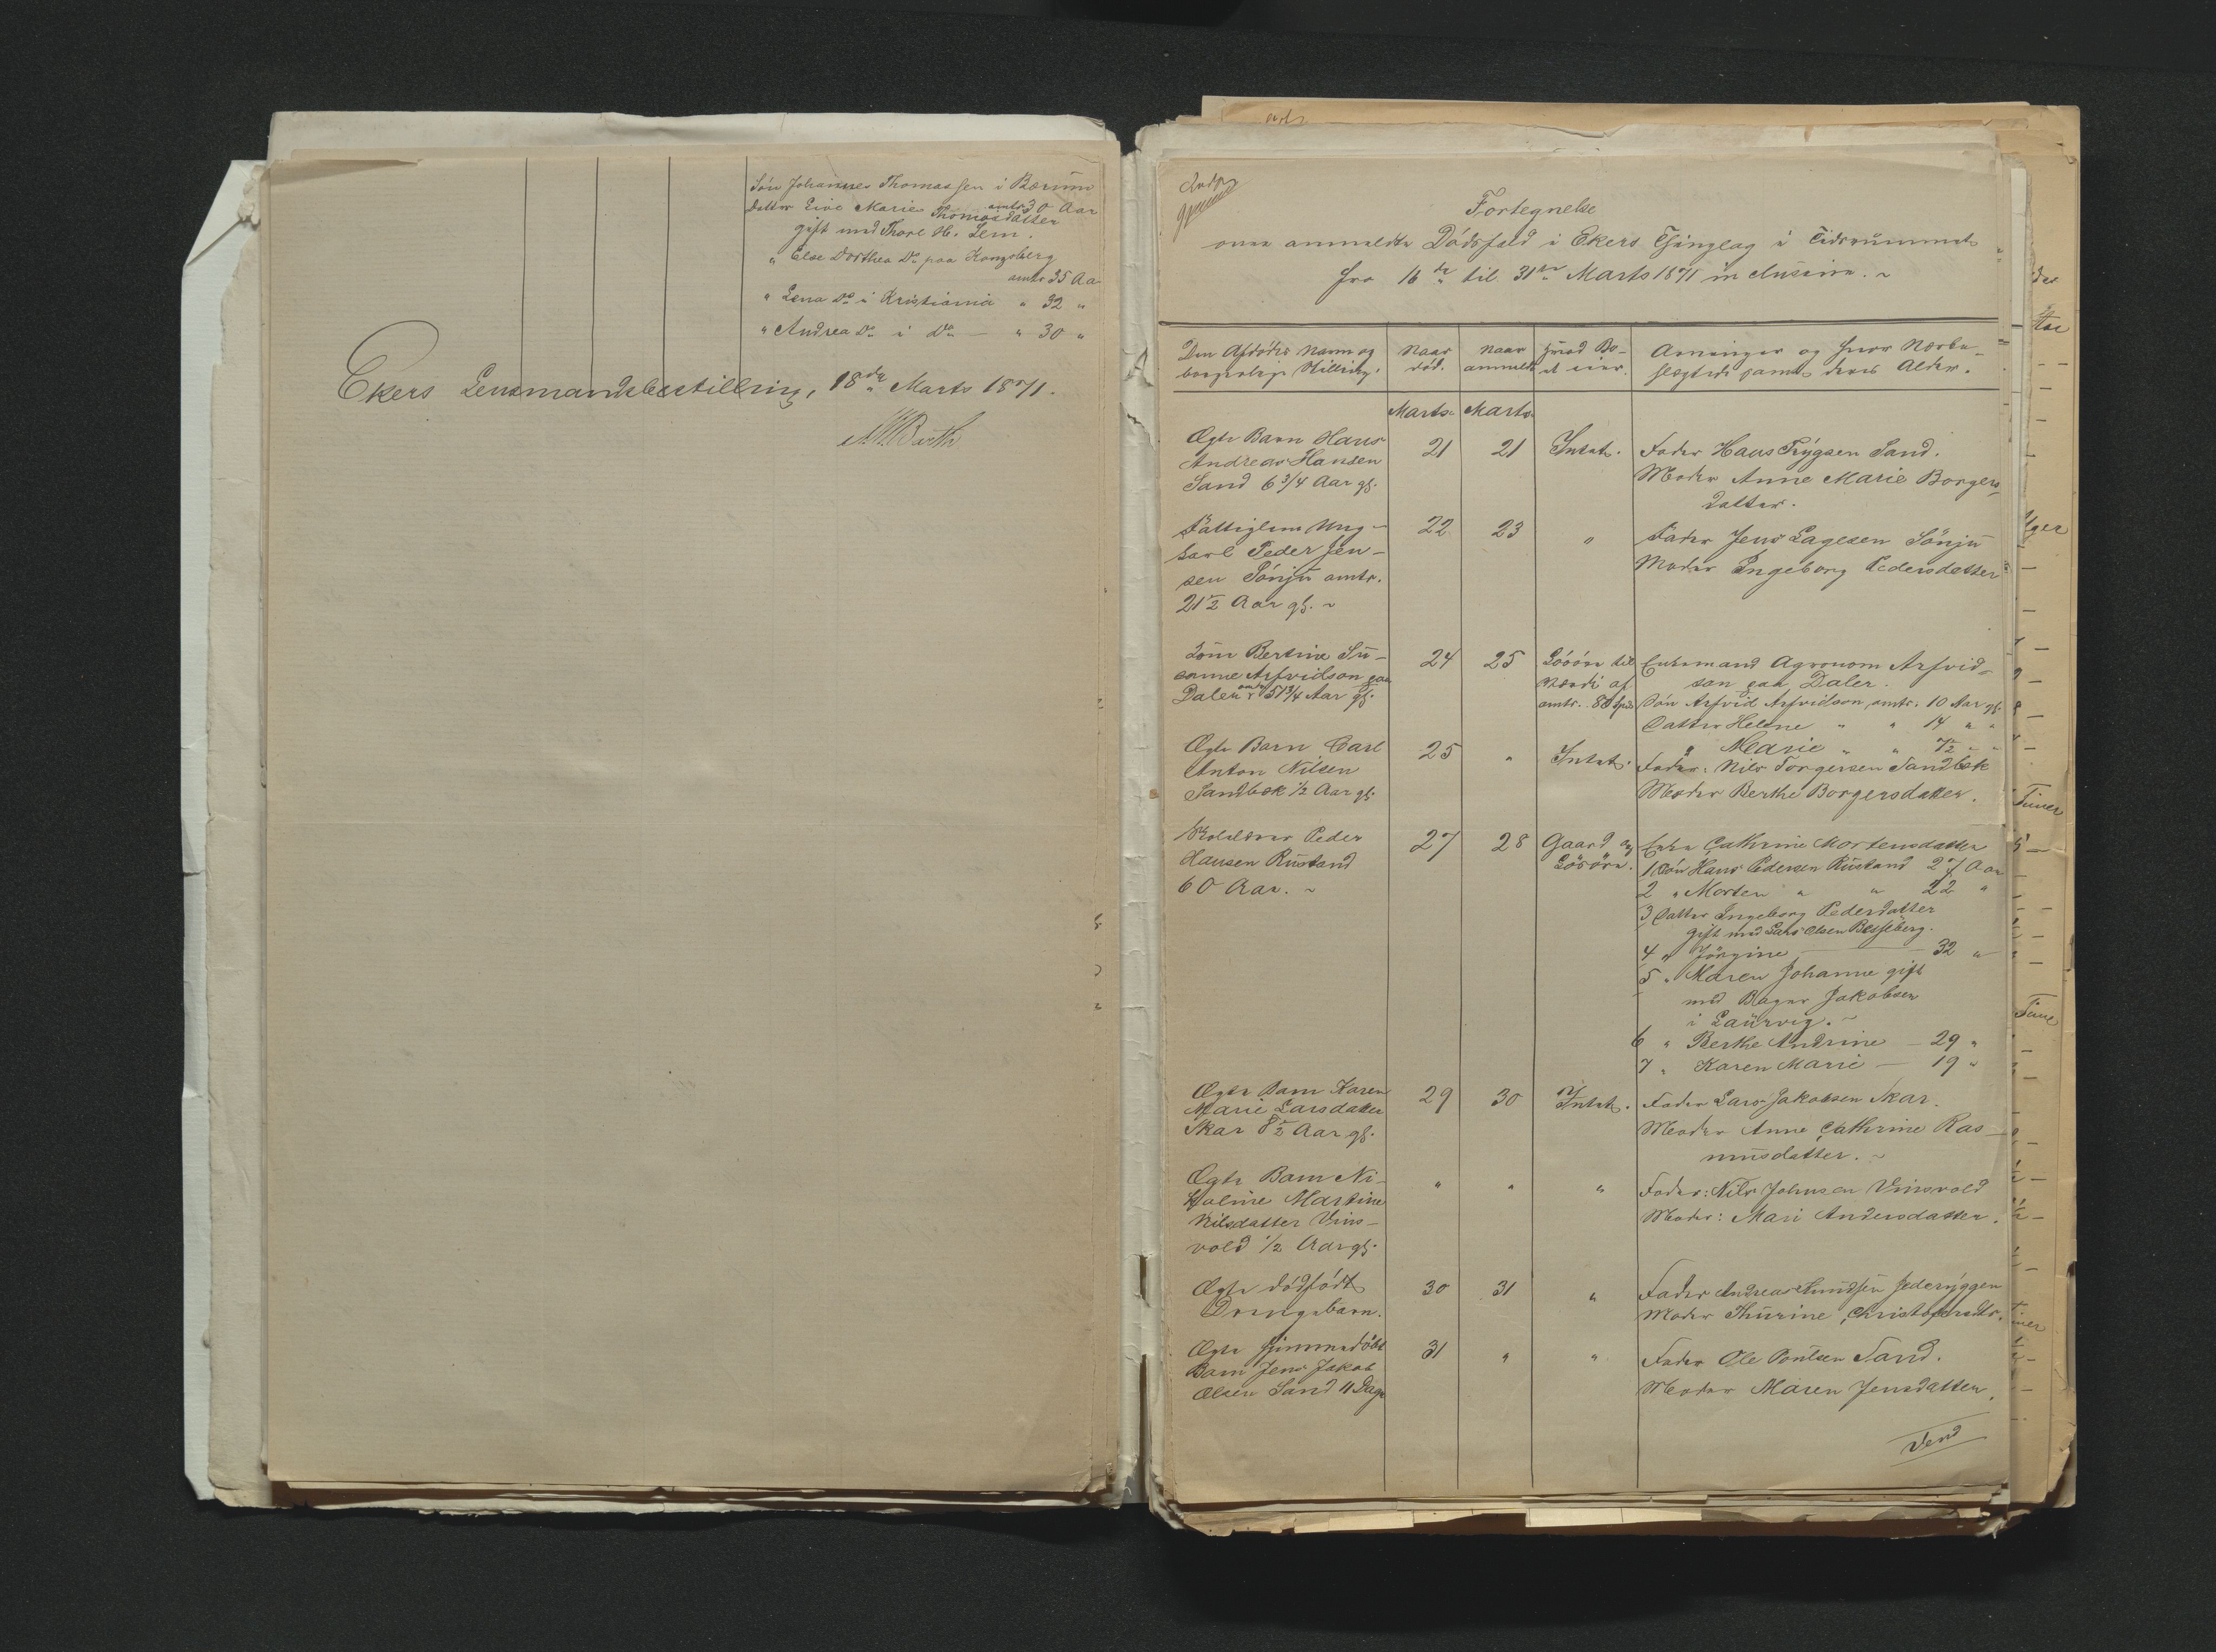 Søn Johannes Thomassen i Bærum
amtr 30 Aar
Datter Live Marie Thomasdatter
gift med Thore H. Lem.
" Else Dorthea Do paa Kongsberg
amtr 35 Aa
" Lena Do i Kristiania " 32 "
" Andrea Do i Do — " 30 "
Ekers Lensmandsbestilling, 18de Marts 1871.
Barth
Fortegnelse
over anmeldte Dödsfald i Ekers Thinglag i Tidsrummet
fra 16de til 31te Marts 1871 inclusive.
Den Afdödes Navn og
borgerlige Stilling.
Naar
död.
Naar
anmeldt
Hvad Bo-
et eier.
Arvinger og hvor Nærbe-
slægtede samt deres Alder.
Marts Marts
Ægte Barn Hans
Andreas Hansen
Sand 6 3/4 Aar gl.
21 21 Intet.
Fader Hans Trygsen Sand.
Moder Anne Marie Borgers-
datter.
Fattiglem Ung-
karl Peder Jen-
sen Sönju amtr.
21 1/2 Aar gl.
22 23 "
Fader Jens Lagesen Sönju
Moder Ingeborg Pedersdatter
Kone Bertine Su-
sanne Arfvidson paa
Dalen amtr 51 3/4 Aar gl.
24 25 Lösöre til
Værdi af
amtr. 80 Spd
Enkemand Agronom Arfvid-
son paa Dalen.
Sön Arfvid Arfvidson amtr. 10 Aar gl.
Datter Helene " " 14 " "
" Marie " " 7 1/2 " "
Ægte Barn Carl
Anton Nilsen
Sandbæk 1/2 Aar gl.
25 " Intet.
Fader: Nils Torgersen Sandbæk
Moder Berthe Borgersdatter.
Peder
Hansen Rustand
60 Aar.
27 28 Gaard og
Lösöre.
Enke Cathrine Mortensdatter
1 Sön Hans Pedersen Rustand 27 Aar
2 " Morten " " 22 "
3 Datter Ingeborg Pedersdatter
gift med Lars Olsen Besseberg.
4 " Jörgine 32 "
5 " Maren Johanne gift
med Bager Jakobsen
i Laurvig.
6 " Berthe Andrine — 29 "
7 " Karen Marie — 19 "
Ægte Barn Karen
Marie Larsdatter
Skar 8 1/2 Aar gl.
29 30 Intet.
Fader Lars Jakobsen Skar.
Moder Anne Cathrine Ras-
musdatter.
Ægte Barn Ni-
koline Martine
Nilsdatter Vins-
vold 1/2 Aar gl.
" " "
Fader: Nils Johnsen Vinsvold
Moder: Mari Andersdatter.
Ægte dödfödt
Drengebarn.
30 31 "
Fader Andreas Knudsen Jederyggen
Moder Thurine Christophersdtr.
Ægte hjemmedöbt
Barn Jens Jakob
Olsen Sand 11 Dage
31 " "
Fader Ole Poulsen Sand.
Moder Maren Jensdatter.
Vend